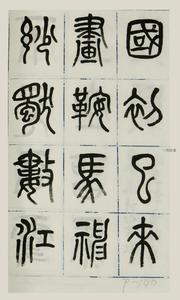 國初已來
畫鞍馬神
妙獨數江
P-140